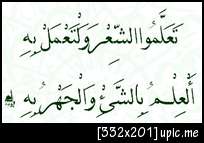 تَعَلَّمُوا الشِّعْرَ وَلْتَعْمَلْ بِهِ
اَلْعِلْمُ بِالشَّئِ وَالْجَهْرُ بِهِ
[332x201] upic.me